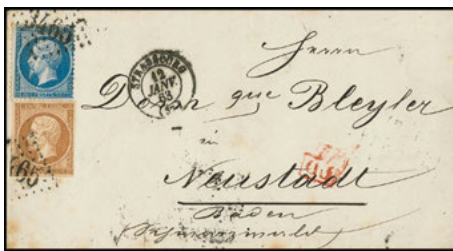 3465
STRASBOURG
12
JANV.
63
465
Herrn
Dom que Bleyler
in
Neustadt
Baden